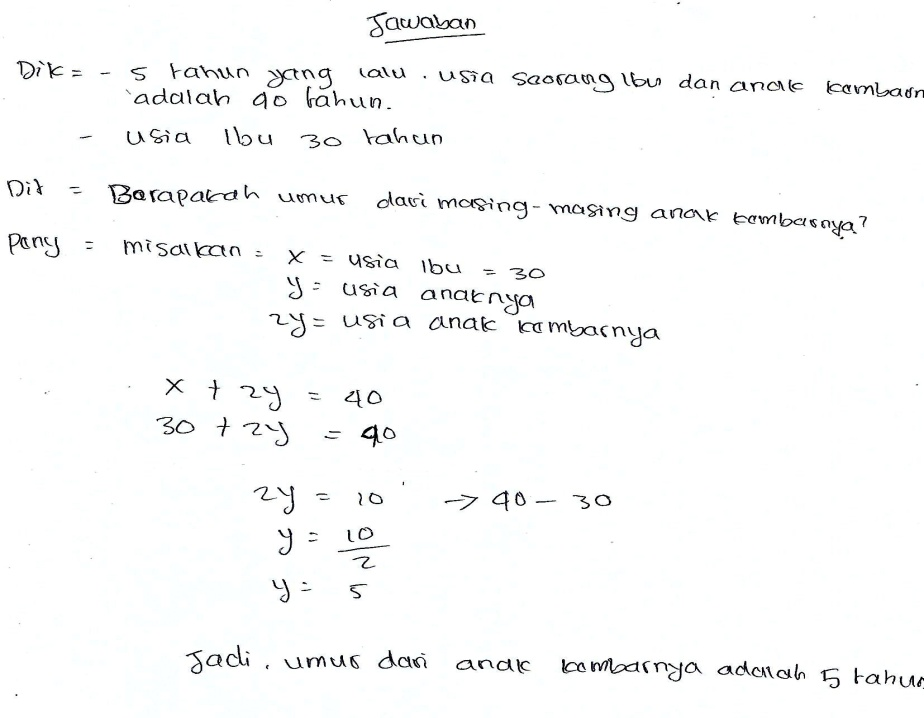 Jawaban
Dik = - 5 tahun yang lalu. usia seorang Ibu dan anak kembarn
adalah 40 tahun.
- usia Ibu 30 tahun
Dit = Berapakah umur dari masing-masing anak kembarnya?
Peny = misalkan = x = usia Ibu = 30
y = usia anaknya
2y = usia anak kembarnya
x + 2y = 40
30 + 2y = 40
2y = 10 → 40 - 30
y = 10/2
y = 5
Jadi, umur dari anak kembarnya adalah 5 tahun